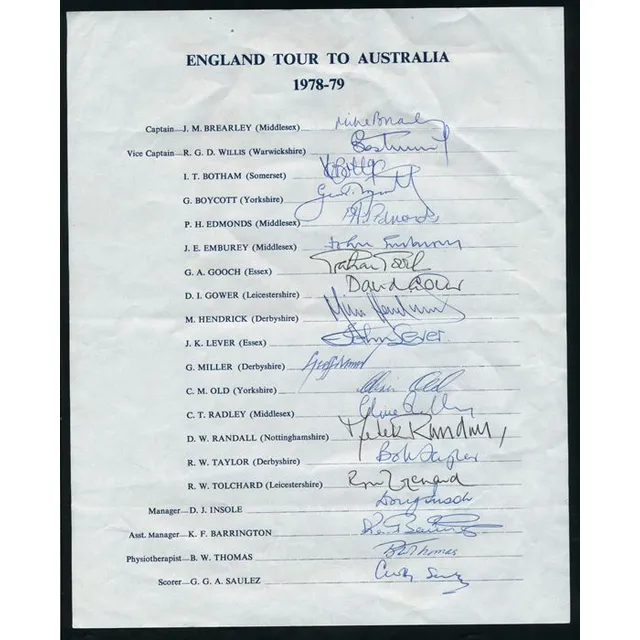 ENGLAND TOUR TO AUSTRALIA
1978-79
Captain—J. M. BREARLEY (Middlesex) Mike Brearley
Vice Captain—R. G. D. WILLIS (Warwickshire)
I. T. BOTHAM (Somerset)
G. BOYCOTT (Yorkshire)
P. H. EDMONDS (Middlesex) P.H. Edmonds
J. E. EMBUREY (Middlesex) John Emburey
G. A. GOOCH (Essex) Graham Gooch
D. I. GOWER (Leicestershire) David Gower
M. HENDRICK (Derbyshire) Mike Hendrick
J. K. LEVER (Essex) John Lever
G. MILLER (Derbyshire) Geoff Miller
C. M. OLD (Yorkshire) Chris Old
C. T. RADLEY (Middlesex) Clive Radley
D. W. RANDALL (Nottinghamshire) Derek Randall
R. W. TAYLOR (Derbyshire) Bob Taylor
R. W. TOLCHARD (Leicestershire)
Manager—D. J. INSOLE Doug Insole
Asst. Manager—K. F. BARRINGTON
Physiotherapist—B. W. THOMAS B W Thomas
Scorer—G. G. A. SAULEZ